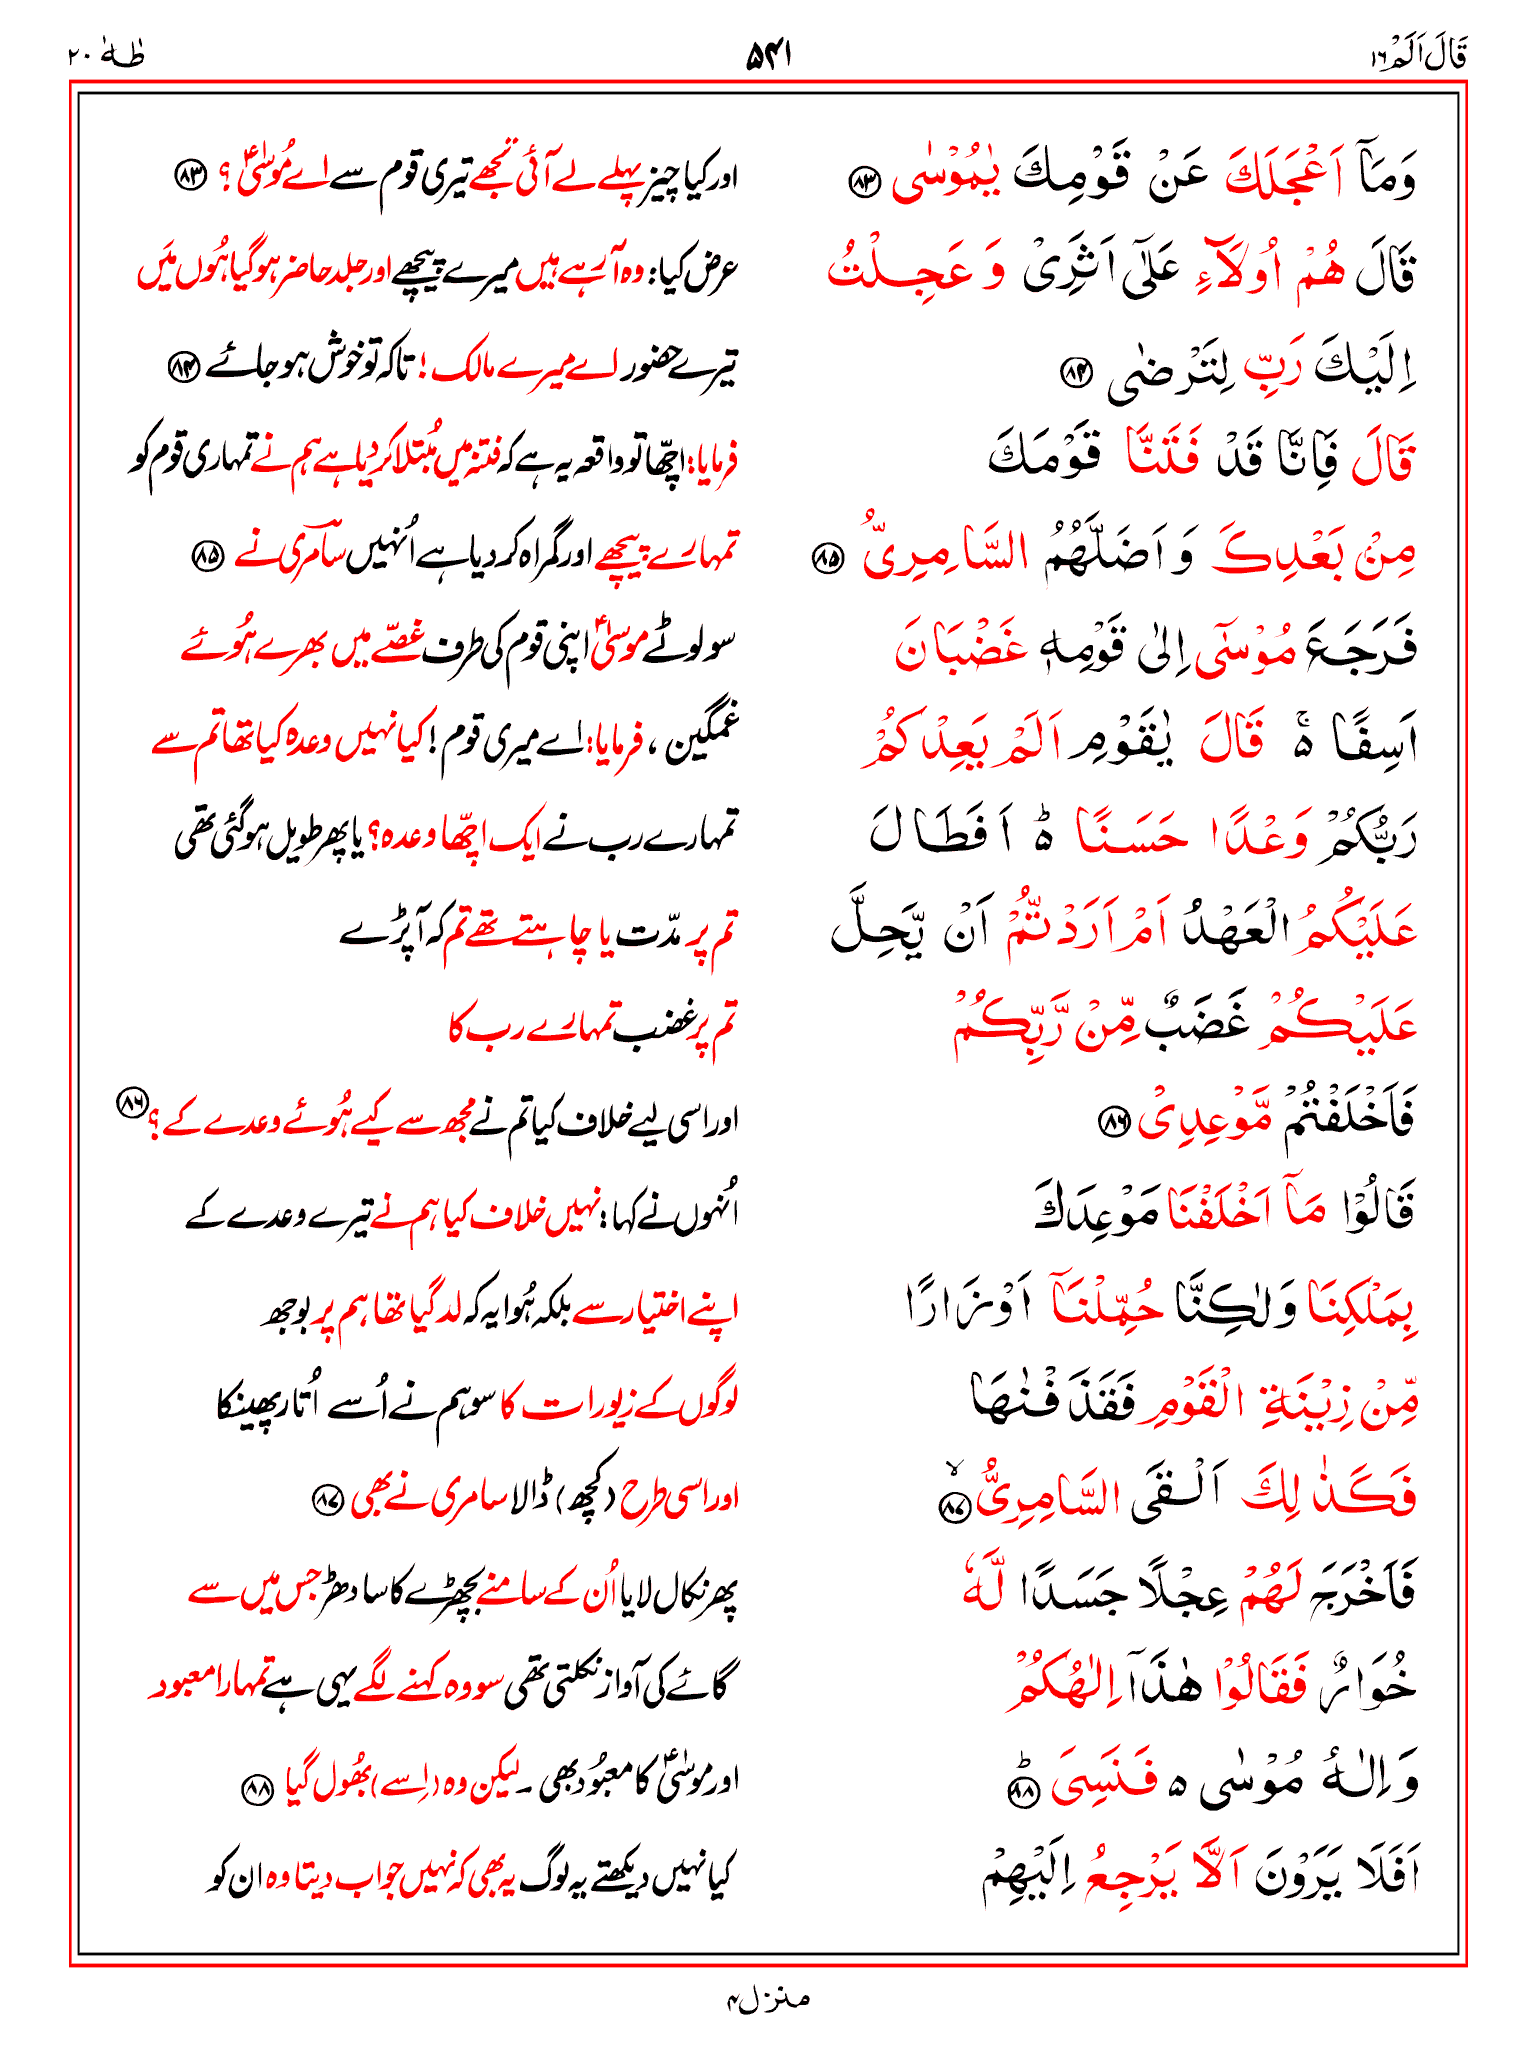 قَالَ اَلَمْ ١٦
۵۴۱
طٰهٰ ٢٠
وَمَآ اَعْجَلَكَ عَنْ قَوْمِكَ يٰمُوْسٰى ۸۳
اور کیا چیز پہلے لے آئی تجھے تیری قوم سے اے مُوسیٰؑ ؟ ۸۳
قَالَ هُمْ اُولَآءِ عَلٰٓى اَثَرِىْ وَ عَجِلْتُ
عرض کیا: وہ آرہے ہیں میرے پیچھے اور جلد حاضر ہوگیا ہُوں مَیں
اِلَيْكَ رَبِّ لِتَرْضٰى ۸۴
تیرے حضور اے میرے مالک! تاکہ تو خوش ہو جائے ۸۴
قَالَ فَاِنَّا قَدْ فَتَنَّا قَوْمَكَ
فرمایا: اچّھا تو واقعہ یہ ہے کہ فتنہ میں مُبتلا کر دیا ہے ہم نے تمہاری قوم کو
مِنْ بَعْدِكَ وَ اَضَلَّهُمُ السَّامِرِىُّ ۸۵
تمہارے پیچھے اور گمراہ کر دیا ہے اُنہیں سامری نے ۸۵
فَرَجَعَ مُوْسٰٓى اِلٰى قَوْمِهٖ غَضْبَانَ
سو لوٹے موسیٰؑ اپنی قوم کی طرف غصّے میں بھرے ہُوئے
اَسِفًا ۵ۚ قَالَ يٰقَوْمِ اَلَمْ يَعِدْكُمْ
غمگین، فرمایا: اے میری قوم! کیا نہیں وعدہ کیا تھا تم سے
رَبُّكُمْ وَعْدًا حَسَنًا ۵ؕ اَفَطَالَ
تمہارے رب نے ایک اچّھا وعدہ؟ یا پھر طویل ہوگئی تھی
عَلَيْكُمُ الْعَهْدُ اَمْ اَرَدْتُّمْ اَنْ يَّحِلَّ
تم پر مدّت یا چاہتے تھے تم کہ آپڑے
عَلَيْكُمْ غَضَبٌ مِّنْ رَّبِّكُمْ
تم پر غضب تمہارے رب کا
فَاَخْلَفْتُمْ مَّوْعِدِىْ ۸۶
اور اسی لیے خلاف کیا تم نے مجھ سے کیے ہُوئے وعدے کے؟ ۸۶
قَالُوْا مَآ اَخْلَفْنَا مَوْعِدَكَ
اُنہوں نے کہا: نہیں خلاف کیا ہم نے تیرے وعدے کے
بِمَلْكِنَا وَلٰكِنَّا حُمِّلْنَآ اَوْزَارًا
اپنے اختیار سے بلکہ ہُوا یہ کہ لد گیا تھا ہم پر بوجھ
مِّنْ زِيْنَةِ الْقَوْمِ فَقَذَفْنٰهَا
لوگوں کے زیورات کا سو ہم نے اُسے اُتار پھینکا
فَكَذٰلِكَ اَلْقَى السَّامِرِىُّ ۸۷ۙ
اور اسی طرح (کچھ) ڈالا سامری نے بھی ۸۷
فَاَخْرَجَ لَهُمْ عِجْلًا جَسَدًا لَّهٗ
پھر نکال لایا اُن کے سامنے بچھڑے کا سا دھڑ جس میں سے
خُوَارٌ فَقَالُوْا هٰذَآ اِلٰهُكُمْ
گائے کی آواز نکلتی تھی سو وہ کہنے لگے یہی ہے تمہارا معبود
وَ اِلٰهُ مُوْسٰى ۵ فَنَسِىَ ۸۸ؕ
اور موسیٰؑ کا معبُود بھی ۔ لیکن وہ (اِسے) بُھول گیا ۸۸
اَفَلَا يَرَوْنَ اَلَّا يَرْجِعُ اِلَيْهِمْ
کیا نہیں دیکھتے یہ لوگ یہ بھی کہ نہیں جواب دیتا وہ ان کو
منزل ۴